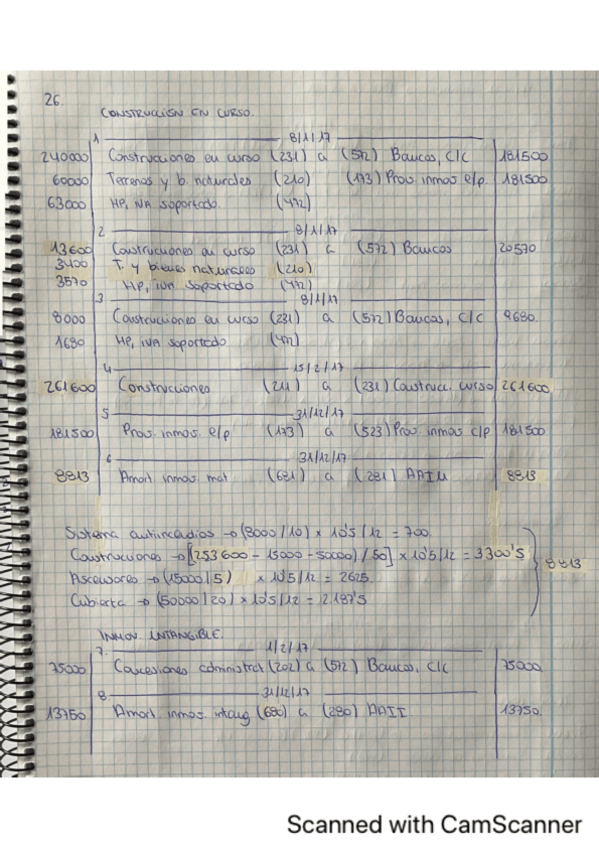 26.
CONSTRUCCIÓN EN CURSO.
1 8/1/17
240000 Construcciones en curso (231) a (572) Bancos, c/c 181500
60000 Terrenos y b. naturales (210) (173) Prov. inmos e/p. 181500
63000 HP, IVA soportado. (472)
2 8/1/17
13600 Construcciones en curso (231) a (572) Bancos 20570
3400 T. y bienes naturales (210)
3570 HP, iva soportado (472)
3 8/1/17
8000 Construcciones en curso (231) a (572) Bancos, c/c 9680.
1680 HP, iva soportado (472)
4 15/2/17
261600 Construcciones (211) a (231) Construcc. curso 261600
5 31/12/17
181500 Prov. inmos. e/p (173) a (523) Prov. inmos c/p 181500
6 31/12/17
8813 Amort. inmos. mat (681) a (281) AAIM 8813
Sistema antiincendios → (8000/10) x 10'5/12 = 700.
Construcciones → [253600 - 15000 - 50000)/50] x 10'5/12 = 3300'5
Ascensores → (15000/5) x 10'5/12 = 2625.
Cubierta → (50000/20) x 10'5/12 = 2187'5
8813
INMOV. INTANGIBLE.
7. 1/2/17
75000 Concesiones administrat (202) a (572) Bancos, c/c 75000
8. 31/12/17
13750 Amort. inmos. intang (680) a (280) AAII 13750.
Scanned with CamScanner